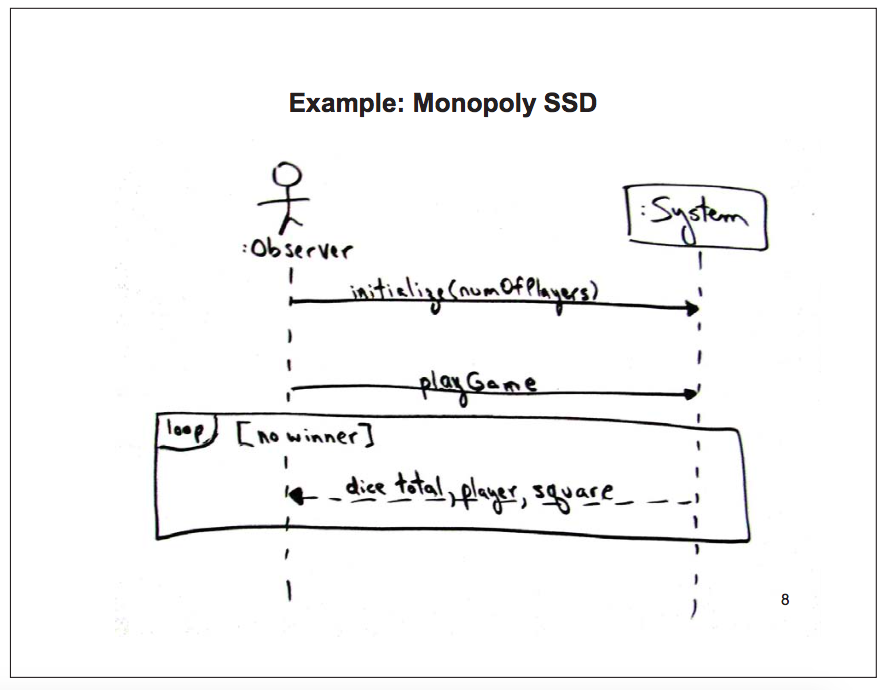 Example: Monopoly SSD
:Observer
:System
initialize(numOfPlayers)
playGame
loop [no winner]
dice total, player, square
8